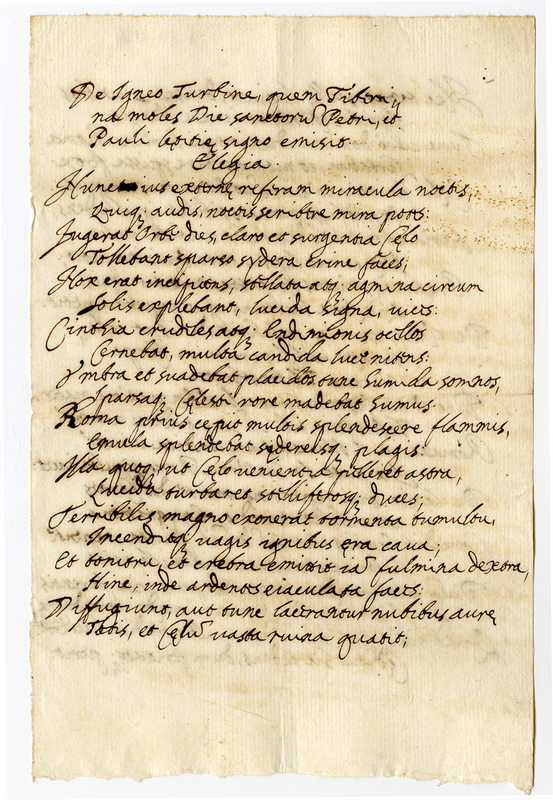 De Igneo Turbine, quem Tiberii
na moles Die sanctorū Petri, et
Pauli lętitię signo emisit.
Elegia.
Hunc ius externę referam miracula noctis,
Quiq; audis, noctis scribere mira potes:
fugerat Orbe dies, claro et surgentia Cęlo
Tollebant sparso sydera crine faces;
Nox erat incipiens, stellata atq; agmina circum
Solis explebant, lucida signa, vices:
Cinthia crudeles atq; Endimionis ocellos
Cernebat, multa candida luce nitens:
Vmbra et suadebat placidos tunc humida somnos,
Sparsaq; Cęlesti rore madebat humus.
Roma prius cępit multis splendescere flammis,
Emula splendebat sydereisq; plagis:
Illa quoq; ut Cęlo venientia pelleret astra,
Lucida turbaret stelliferosq; duces;
Terribilis magno exonerat tormenta tumultu,
Incenditq; vagis ignibus ęra caua;
Et tonitru, et crebra emittit iā fulmina dextra,
Hinc, inde ardentes eiaculata faces:
Diffugiunt, aut tunc lacerantur nubibus aurę
Totis, et Cęlū vasta ruina quatit;